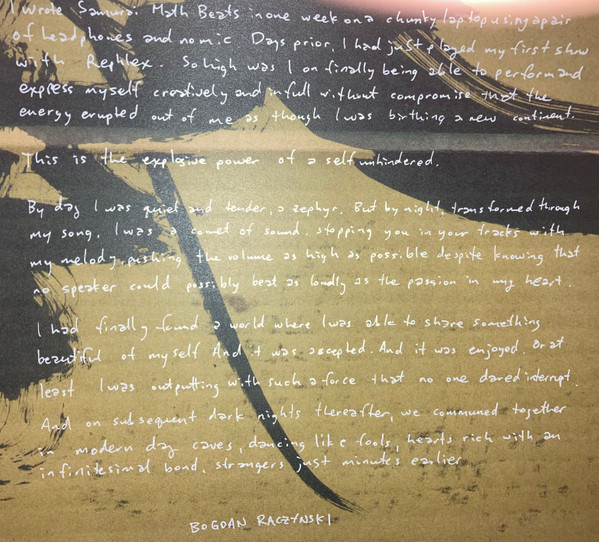 I wrote Samurai Math Beats in one week on a chunky laptop using a pair
of headphones and no mic. Days prior, I had just played my first show
with Rephlex. So high was I on finally being able to perform and
express myself creatively and in full without compromise that the
energy erupted out of me as though I was birthing a new continent.
This is the explosive power of a self unhindered.
By day I was quiet and tender, a zephyr. But by night, transformed through
my song, I was a comet of sound, stopping you in your tracks with
my melody, pushing the volume as high as possible despite knowing that
no speaker could possibly beat as loudly as the passion in my heart.
I had finally found a world where I was able to share something
beautiful of myself. And it was accepted. And it was enjoyed. Or at
least I was outputting with such a force that no one dared interrupt.
And on subsequent dark nights thereafter, we communed together
in modern day caves, dancing like fools, hearts rich with an
infinitesimal bond, strangers just minutes earlier
BOGDAN RACZYNSKI